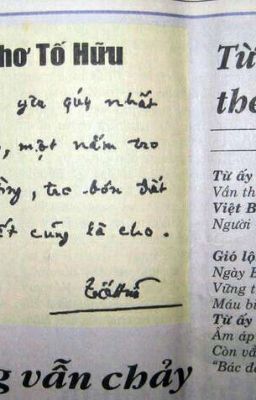 hơ Tố Hữu
yêu quý nhất
, một nắm tro
ờng, tro bón đất
ết cũng là cho.
Tố Hữu
g vẫn chảy
Từ
the
Từ ấy
Vẫn th
Việt B
Người
Gió lộ
Ngày B
Vững t
Máu b
Từ ấy
Ấm áp
Còn v
"Bác đ